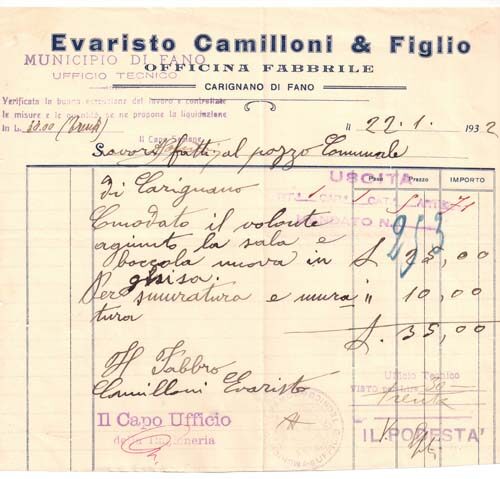 Evaristo Camilloni & Figlio
MUNICIPIO DI FANO
OFFICINA FABBRILE
UFFICIO TECNICO
CARIGNANO DI FANO
Verificata la buona esecuzione del lavoro e controllate
le misure e la quantità se ne propone la liquidazione
in L. 30.00 (Trenta)
Il Capo Sezione
li 22.1. 1932
Lavori fatti al pozzo Comunale
USCITA
Prezzo IMPORTO
di Carignano
MANDATO N. 253
Cmodato il volante
agiunto la sala e
boccola nuova in £ 25,00
ghisa.
Per smuratura e mura " 10,00
tura
£. 35,00
Il Fabbro
Camilloni Evaristo
Ufficio Tecnico
VISTO per Lire 30
trenta
Il Capo Ufficio
della Ragioneria
IL PODESTA'